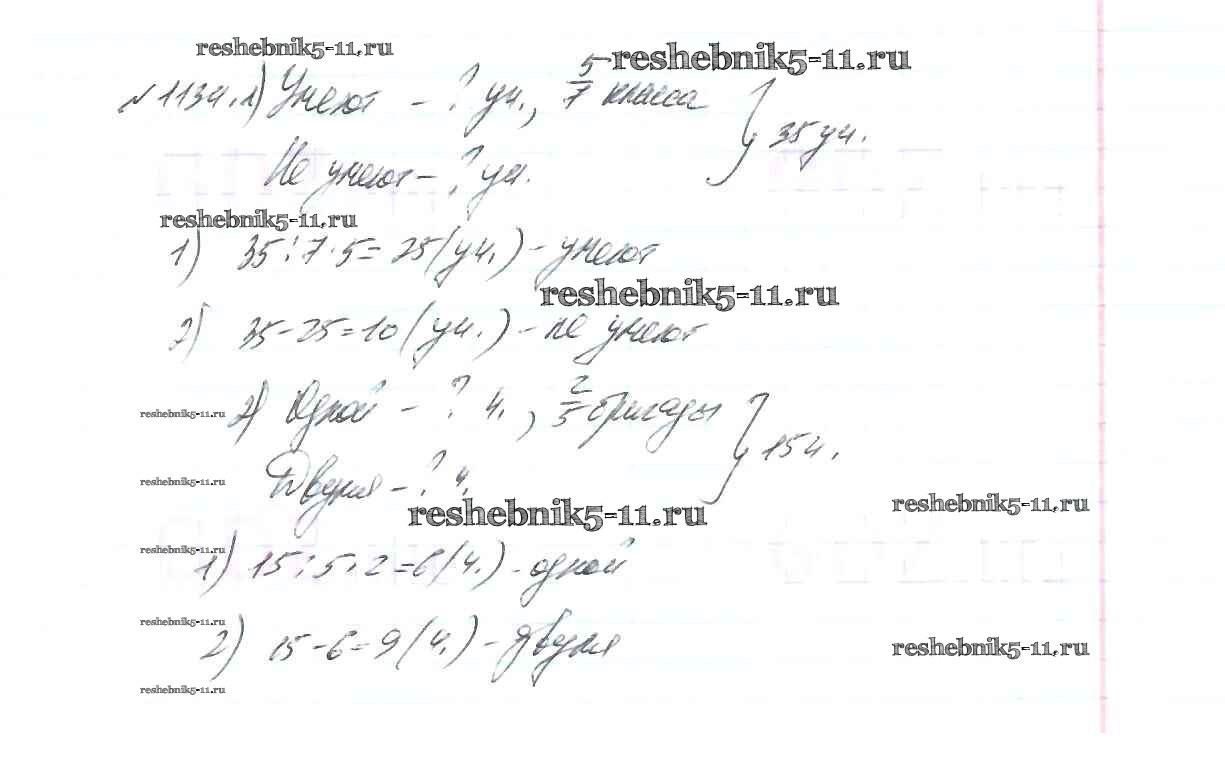 reshebnik5-11.ru
reshebnik5-11.ru
№1134. 1) Умеют - ? уч., 5/7 класса } 35 уч.
Не умеют - ? уч.
reshebnik5-11.ru
1) 35 : 7 · 5 = 25 (уч.) - умеют
reshebnik5-11.ru
2) 35 - 25 = 10 (уч.) - не умеют
reshebnik5-11.ru
2) Одной - ? ч., 2/5 бригады } 15 ч.
reshebnik5-11.ru
Двумя - ? ч.
reshebnik5-11.ru
reshebnik5-11.ru
reshebnik5-11.ru
1) 15 : 5 · 2 = 6 (ч.) - одной
reshebnik5-11.ru
2) 15 - 6 = 9 (ч.) - двумя
reshebnik5-11.ru
reshebnik5-11.ru